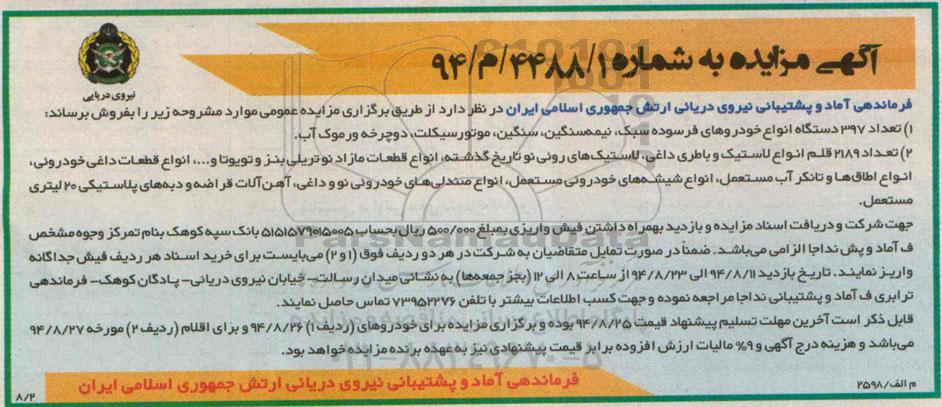 آگهی مزایده به شماره ۹۴/م/۴۴۸۸/۱
نیروی دریایی
فرماندهی آماد و پشتیبانی نیروی دریائی ارتش جمهوری اسلامی ایران در نظر دارد از طریق برگزاری مزایده عمومی موارد مشروحه زیر را بفروش برساند:
۱) تعداد ۳۹۷ دستگاه انواع خودروهای فرسوده سبک، نیمه‌سنگین، سنگین، موتورسیکلت، دوچرخه و رموک آب.
۲) تعداد ۲۱۸۹ قلم انواع لاستیک و باطری داغی، لاستیک‌های روئی نو تاریخ گذشته، انواع قطعات مازاد نو تریلی بنز و تویوتا و...، انواع قطعات داغی خودروئی،
انواع اطاق‌ها و تانکر آب مستعمل، انواع شیشه‌های خودروئی مستعمل، انواع صندلی‌های خودروئی نو و داغی، آهن‌آلات قراضه و دبه‌های پلاستیکی ۲۰ لیتری
مستعمل.
جهت شرکت و دریافت اسناد مزایده و بازدید بهمراه داشتن فیش واریزی بمبلغ ۵۰۰/۰۰۰ ریال بحساب ۵۱۵۱۵۷۹۰۱۵۰۰۵ بانک سپه کوهک بنام تمرکز وجوه مشخص
ف آماد و پش نداجا الزامی می‌باشد. ضمناً در صورت تمایل متقاضیان به شرکت در هر دو ردیف فوق (۱ و ۲) می‌بایست برای خرید اسناد هر ردیف فیش جداگانه
واریز نمایند. تاریخ بازدید ۹۴/۸/۱۱ الی ۹۴/۸/۲۳ از ساعت ۸ الی ۱۲ (بجز جمعه‌ها) به نشانی میدان رسالت- خیابان نیروی دریائی- پادگان کوهک- فرماندهی
ترابری ف آماد و پشتیبانی نداجا مراجعه نموده و جهت کسب اطلاعات بیشتر با تلفن ۷۳۹۵۲۲۷۶ تماس حاصل نمایند.
قابل ذکر است آخرین مهلت تسلیم پیشنهاد قیمت ۹۴/۸/۲۵ بوده و برگزاری مزایده برای خودروهای (ردیف ۱) ۹۴/۸/۲۶ و برای اقلام (ردیف ۲) مورخه ۹۴/۸/۲۷
می‌باشد و هزینه درج آگهی و ۹% مالیات ارزش افزوده برابر قیمت پیشنهادی نیز به عهده برنده مزایده خواهد بود.
فرماندهی آماد و پشتیبانی نیروی دریائی ارتش جمهوری اسلامی ایران
م الف/۲۵۹۸
۸/۲
ParsNamadData